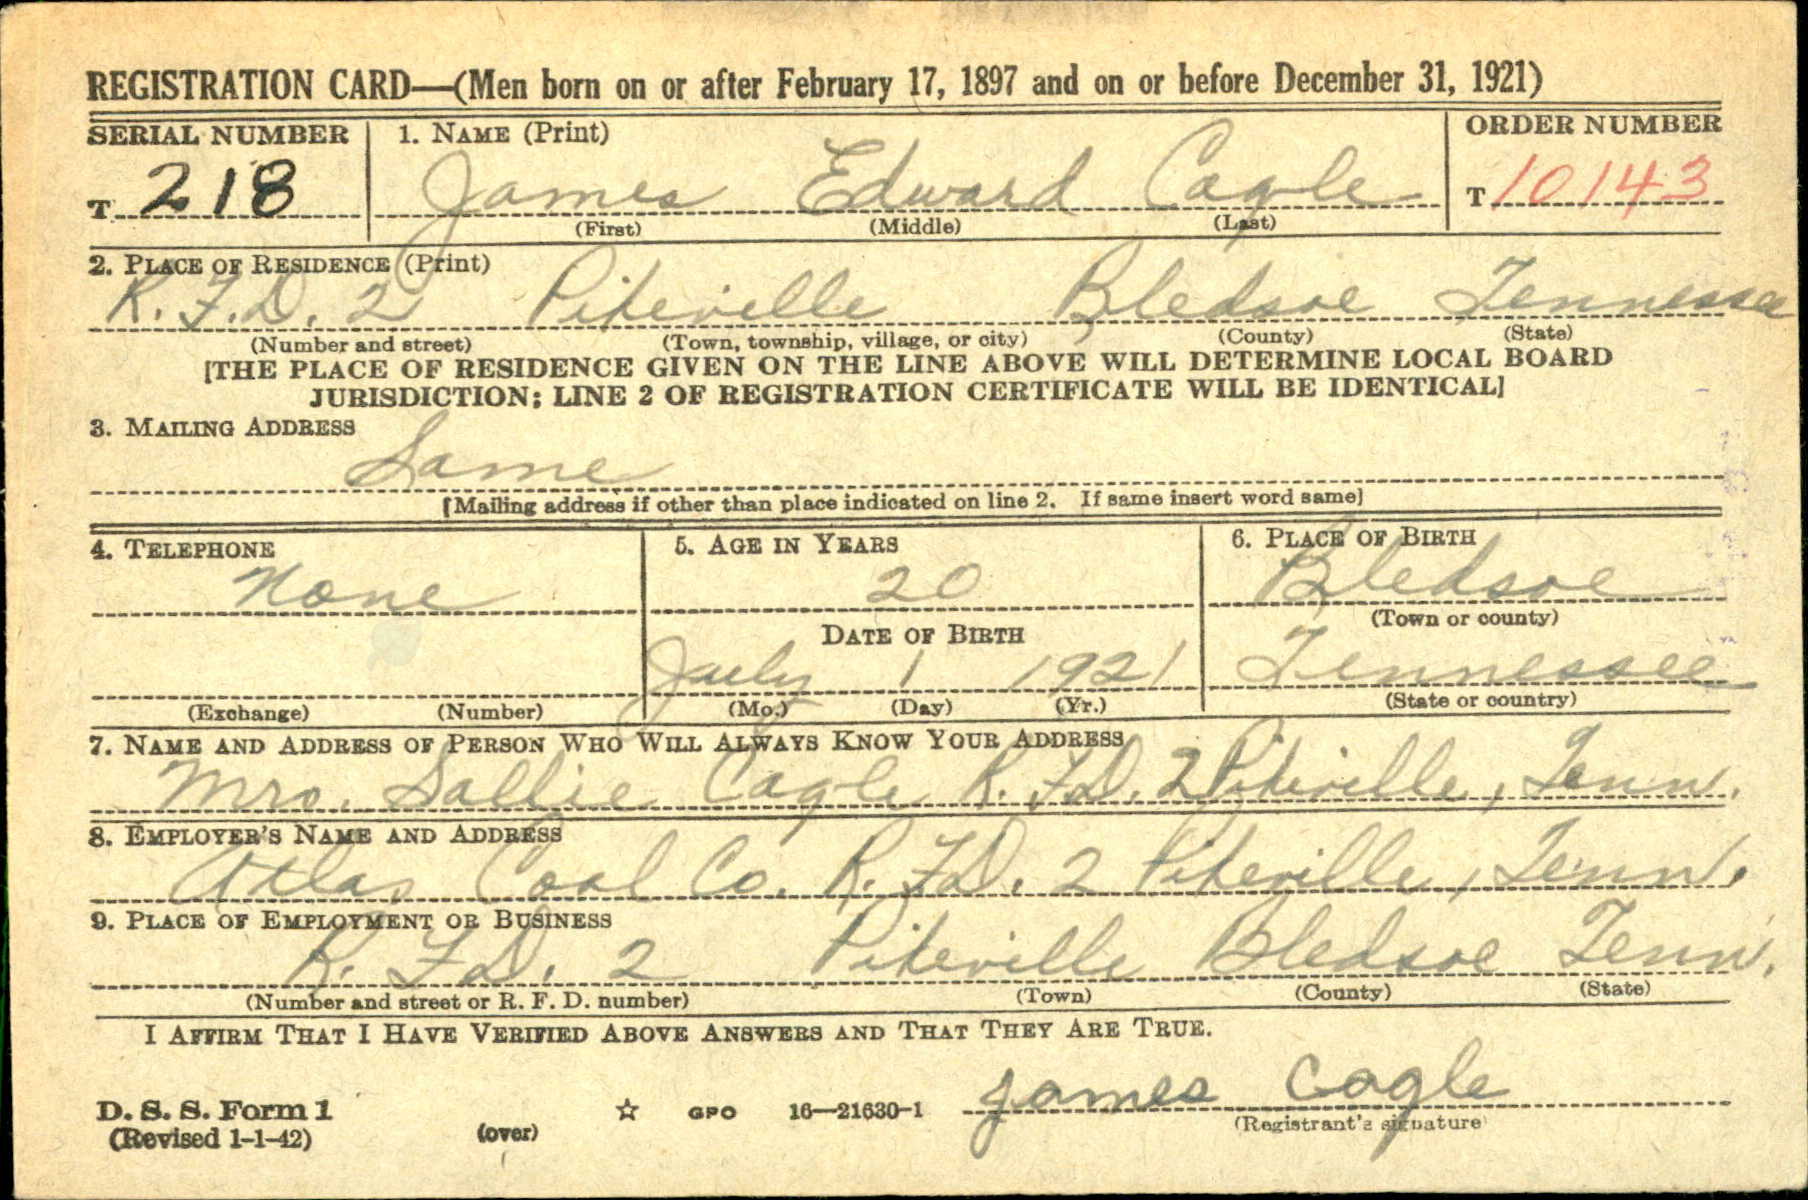 REGISTRATION CARD—(Men born on or after February 17, 1897 and on or before December 31, 1921)
SERIAL NUMBER 1. NAME (Print) ORDER NUMBER
T 218 James Edward Cagle T 10143
(First) (Middle) (Last)
2. PLACE OF RESIDENCE (Print)
R.F.D. 2 Pikeville Bledsoe Tennessee
(Number and street) (Town, township, village, or city) (County) (State)
[THE PLACE OF RESIDENCE GIVEN ON THE LINE ABOVE WILL DETERMINE LOCAL BOARD
JURISDICTION; LINE 2 OF REGISTRATION CERTIFICATE WILL BE IDENTICAL]
3. MAILING ADDRESS
Same
[Mailing address if other than place indicated on line 2. If same insert word same]
4. TELEPHONE 5. AGE IN YEARS 6. PLACE OF BIRTH
None 20 Bledsoe
(Town or county)
DATE OF BIRTH
July 1 1921 Tennessee
(Exchange) (Number) (Mo.) (Day) (Yr.) (State or country)
7. NAME AND ADDRESS OF PERSON WHO WILL ALWAYS KNOW YOUR ADDRESS
Mrs. Sallie Cagle R.F.D. 2 Pikeville, Tenn.
8. EMPLOYER'S NAME AND ADDRESS
Atlas Coal Co. R.F.D. 2 Pikeville, Tenn.
9. PLACE OF EMPLOYMENT OR BUSINESS
R.F.D. 2 Pikeville Bledsoe Tenn.
(Number and street or R. F. D. number) (Town) (County) (State)
I AFFIRM THAT I HAVE VERIFIED ABOVE ANSWERS AND THAT THEY ARE TRUE.
James Cagle
D. S. S. Form 1 (over) ☆ GPO 16—21630-1 (Registrant's signature)
(Revised 1-1-42)